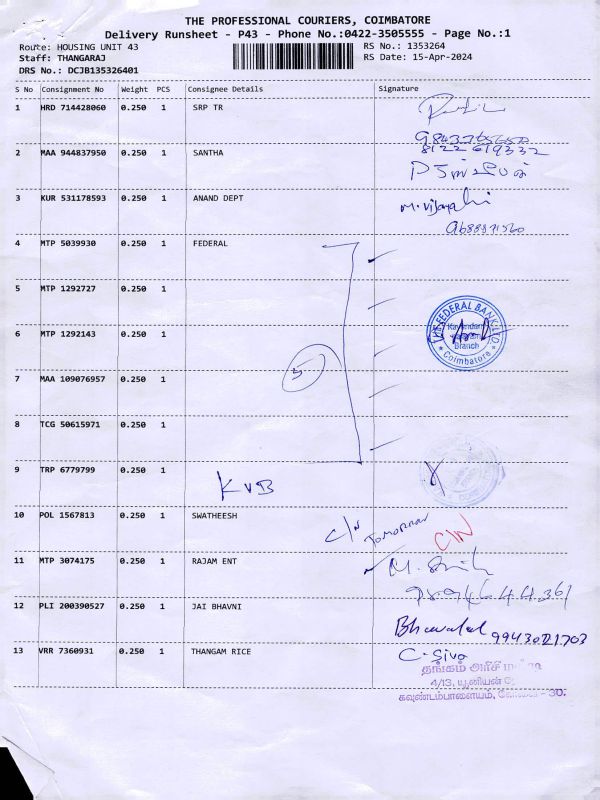 THE PROFESSIONAL COURIERS, COIMBATORE
Delivery Runsheet - P43 - Phone No.:0422-3505555 - Page No.:1
Route: HOUSING UNIT 43
RS No.: 1353264
Staff: THANGARAJ
RS Date: 15-Apr-2024
DRS No.: DCJB135326401
S No Consignment No Weight PCS Consignee Details Signature
1 HRD 714428060 0.250 1 SRP TR
2 MAA 944837950 0.250 1 SANTHA
8122619332
3 KUR 531178593 0.250 1 ANAND DEPT
4 MTP 5039930 0.250 1 FEDERAL
5 MTP 1292727 0.250 1
6 MTP 1292143 0.250 1
THE FEDERAL BANK LTD.
Branch
Coimbatore
7 MAA 109076957 0.250 1
5
8 TCG 50615971 0.250 1
9 TRP 6779799 0.250 1
KVB
10 POL 1567813 0.250 1 SWATHEESH
C/N Tomorrow
C/N
11 MTP 3074175 0.250 1 RAJAM ENT
12 PLI 200390527 0.250 1 JAI BHAVNI
9943021703
13 VRR 7360931 0.250 1 THANGAM RICE
C. Siva
தங்கம் அரிசி
4/13, யூனியன்
கவுண்டம்பாளையம், கோவை - 30.